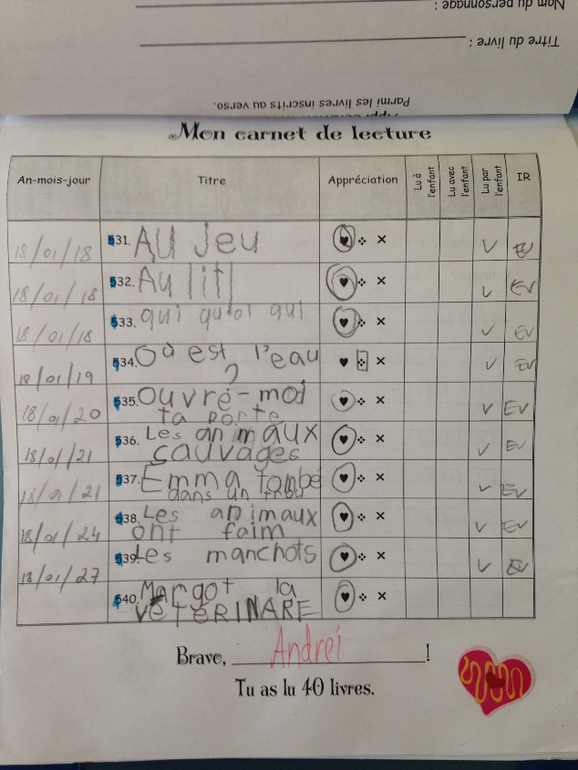 Nom du personnage :
Titre du livre :
Parmi les livres inscrits au verso.
Mon carnet de lecture
An-mois-jour Titre Appréciation Lu à l'enfant Lu avec l'enfant Lu par l'enfant IR
18/01/18 531. Au jeu ♥ ❖ × V EV
18/01/18 532. Au lit! ♥ ❖ × V EV
18/01/18 533. qui quoi qui ♥ ❖ × V EV
18/01/19 534. Où est l'eau ♥ ❖ × V EV
?
18/01/20 535. Ouvre-moi ♥ ❖ × V EV
ta porte
18/01/21 536. Les animaux ♥ ❖ × V EV
sauvages
18/01/21 537. Emma tombé ♥ ❖ × V EV
dans un trou
18/01/24 538. Les animaux ♥ ❖ × V EV
ont faim
18/01/27 539. Les manchots ♥ ❖ × V EV
540. Margot la ♥ ❖ ×
VéTéRINARE
Bravo, Andrei !
Tu as lu 40 livres.